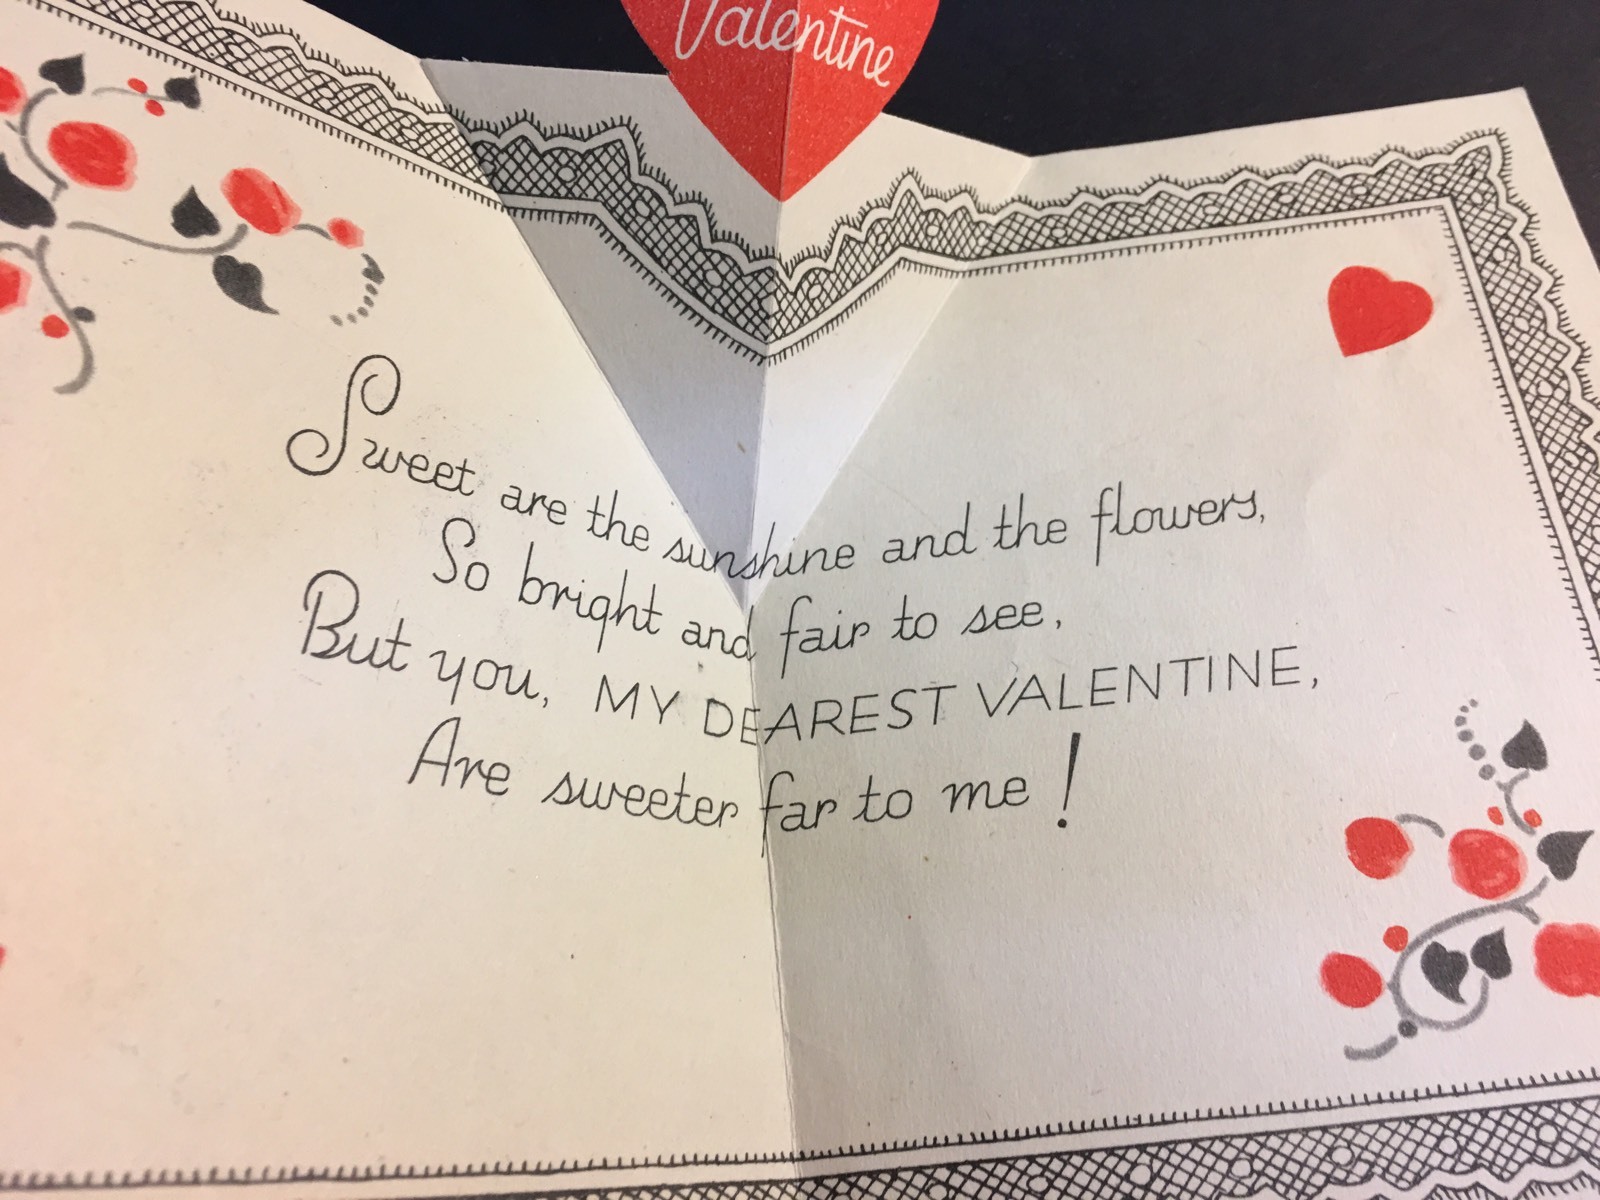 Valentine
Sweet are the sunshine and the flowers,
So bright and fair to see,
But you, MY DEAREST VALENTINE,
Are sweeter far to me!